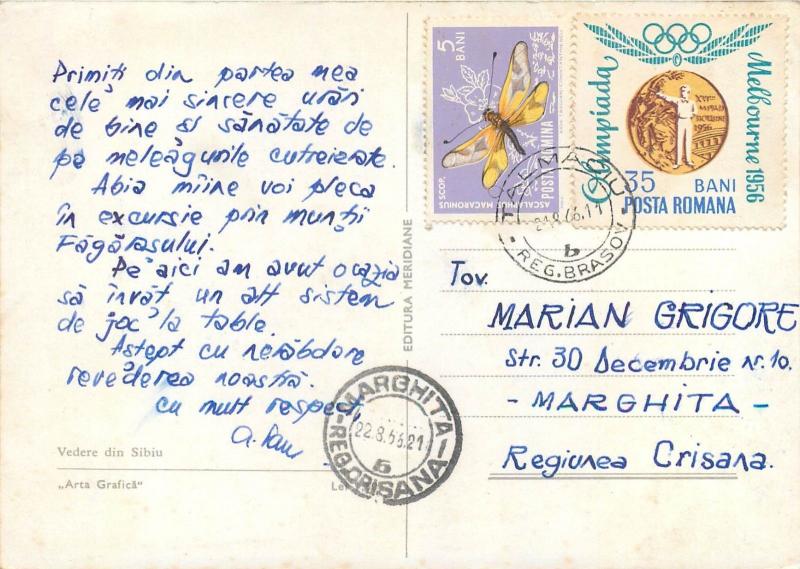 Primiți din partea mea
cele mai sincere urări
de bine și sănătate de
pe meleagurile cutreierate.
Abia mîine voi pleca
în excursie prin munții
Făgărașului.
Pe aici am avut ocazia
să învăț un alt sistem
de joc la table.
Aștept cu nerăbdare
revederea noastră.
cu mult respect,
Vedere din Sibiu
„Arta Grafică”
Lei
EDITURA MERIDIANE
5 BANI
SCOP.
ASCALAPHUS MACARONIUS
POSTA ROMINA
Olimpiada Melbourne 1956
1956
35 BANI
POSTA ROMANA
21.8.66.11
REG. BRASOV
b
MARGHITA
22.8.66.21
b
REG. CRISANA
Tov.
MARIAN GRIGORE
Str. 30 Decembrie nr. 10.
- MARGHITA -
Regiunea Crisana.